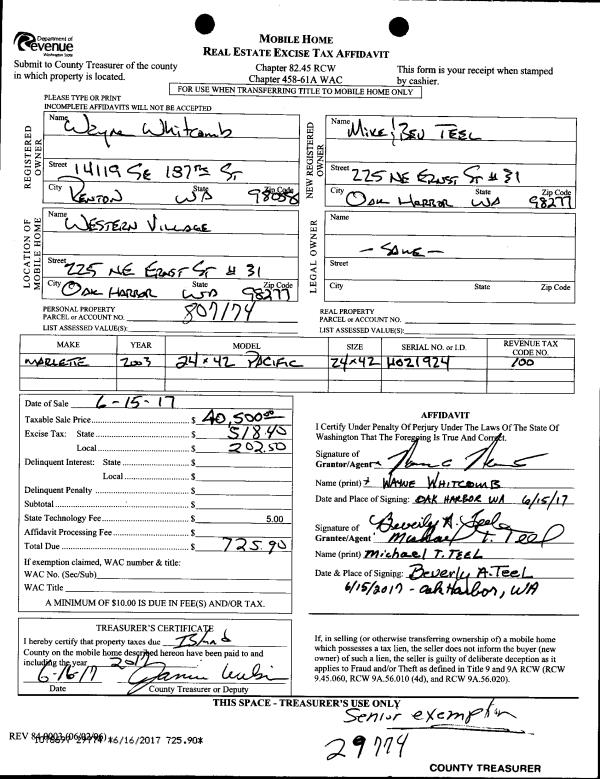 Department of
Revenue
Washington State
MOBILE HOME
REAL ESTATE EXCISE TAX AFFIDAVIT
Submit to County Treasurer of the county
in which property is located.
Chapter 82.45 RCW
Chapter 458-61A WAC
This form is your receipt when stamped
by cashier.
FOR USE WHEN TRANSFERRING TITLE TO MOBILE HOME ONLY
PLEASE TYPE OR PRINT
INCOMPLETE AFFIDAVITS WILL NOT BE ACCEPTED
REGISTERED OWNER
Name Wayne Whitcomb
Street 14119 SE 187TH ST
City RENTON State WA Zip Code 98058
NEW REGISTERED OWNER
Name MIKE & BEV TEEL
Street 225 NE ERNST ST # 31
City OAK HARBOR State WA Zip Code 98277
LOCATION OF MOBILE HOME
Name WESTERN VILLAGE
Street 225 NE ERNST ST # 31
City OAK HARBOR State WA Zip Code 98277
LEGAL OWNER
Name
- SAME -
Street
City State Zip Code
PERSONAL PROPERTY
PARCEL or ACCOUNT NO. 807174
LIST ASSESSED VALUE(S):
REAL PROPERTY
PARCEL or ACCOUNT NO.
LIST ASSESSED VALUE(S):
MAKE YEAR MODEL SIZE SERIAL NO. or I.D. REVENUE TAX CODE NO.
MARLETTE 2003 24 x 42 PACIFIC 24x42 H021924 100
Date of Sale 6-15-17
Taxable Sale Price $ 40,500.00
Excise Tax: State $ 518.40
Local $ 202.50
Delinquent Interest: State $
Local $
Delinquent Penalty $
Subtotal $
State Technology Fee $ 5.00
Affidavit Processing Fee $
Total Due $ 725.90
If exemption claimed, WAC number & title:
WAC No. (Sec/Sub)
WAC Title
A MINIMUM OF $10.00 IS DUE IN FEE(S) AND/OR TAX.
AFFIDAVIT
I Certify Under Penalty Of Perjury Under The Laws Of The State Of
Washington That The Foregoing Is True And Correct.
Signature of
Grantor/Agent
Name (print) WAYNE WHITCOMB
Date and Place of Signing: OAK HARBOR WA 6/15/17
Signature of
Grantee/Agent Beverly A. Teel
Michael T. Teel
Name (print) Michael T. TEEL
Date & Place of Signing: Beverly A. Teel
6/15/2017 - oak Harbor, WA
TREASURER'S CERTIFICATE
I hereby certify that property taxes due Island
County on the mobile home described hereon have been paid to and
including the year 2017
6-16-17
Date County Treasurer or Deputy
If, in selling (or otherwise transferring ownership of) a mobile home
which possesses a tax lien, the seller does not inform the buyer (new
owner) of such a lien, the seller is guilty of deliberate deception as it
applies to Fraud and/or Theft as defined in Title 9 and 9A RCW (RCW
9.45.060, RCW 9A.56.010 (4d), and RCW 9A.56.020).
THIS SPACE - TREASURER'S USE ONLY
Senior exemption
REV 84 0003 (06/03/96)
29774 *6/16/2017 725.90*
29774
COUNTY TREASURER